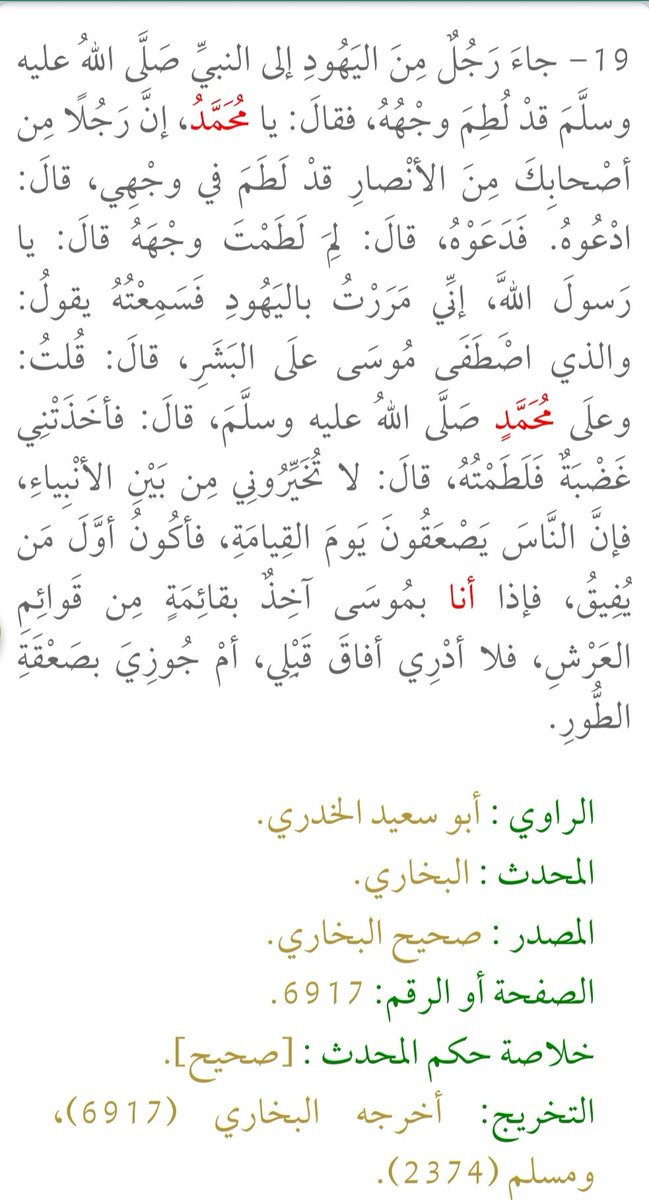 19 – جاءَ رَجُلٌ مِنَ اليَهُودِ إلى النبيِّ صَلَّى اللهُ عليه
وسلَّمَ قدْ لُطِمَ وجْهُهُ، فقالَ: يا مُحَمَّدُ، إنَّ رَجُلًا مِن
أصْحابِكَ مِنَ الأنْصارِ قدْ لَطَمَ في وجْهِي، قالَ:
ادْعُوهُ. فَدَعَوْهُ، قالَ: لِمَ لَطَمْتَ وجْهَهُ قالَ: يا
رَسولَ اللهِ، إنِّي مَرَرْتُ باليَهُودِ فَسَمِعْتُهُ يقولُ:
والذي اصْطَفَى مُوسَى علَى البَشَرِ، قالَ: قُلتُ:
وعلَى مُحَمَّدٍ صَلَّى اللهُ عليه وسلَّمَ، قالَ: فأخَذَتْنِي
غَضْبَةٌ فَلَطَمْتُهُ، قالَ: لا تُخَيِّرُونِي مِن بَيْنِ الأنْبِياءِ،
فإنَّ النَّاسَ يَصْعَقُونَ يَومَ القِيامَةِ، فأكُونُ أوَّلَ مَن
يُفِيقُ، فإذا أنا بمُوسَى آخِذٌ بقائِمَةٍ مِن قَوائِمِ
العَرْشِ، فلا أدْرِي أفاقَ قَبْلِي، أمْ جُوزِيَ بصَعْقَةِ
الطُّورِ.
الراوي : أبو سعيد الخدري.
المحدث : البخاري.
المصدر : صحيح البخاري.
الصفحة أو الرقم: 6917.
خلاصة حكم المحدث : [صحيح].
التخريج: أخرجه البخاري (6917)،
ومسلم (2374).